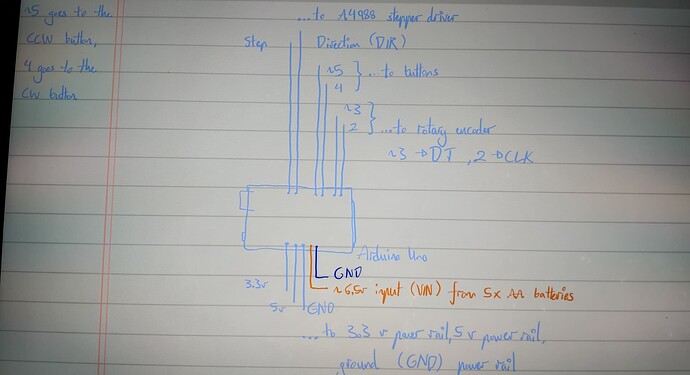 ~5 goes to the
CCW button,
4 goes to the
CW button
...to A4988 stepper driver
Step
Direction (DIR)
~5
4
...to buttons
~3
2
...to rotary encoder
~3 → DT, 2 → CLK
Arduino Uno
GND
~6.5v input (VIN) from 5x AA batteries
3.3v
5v
GND
...to 3.3 v power rail, 5 v power rail,
ground (GND) power rail